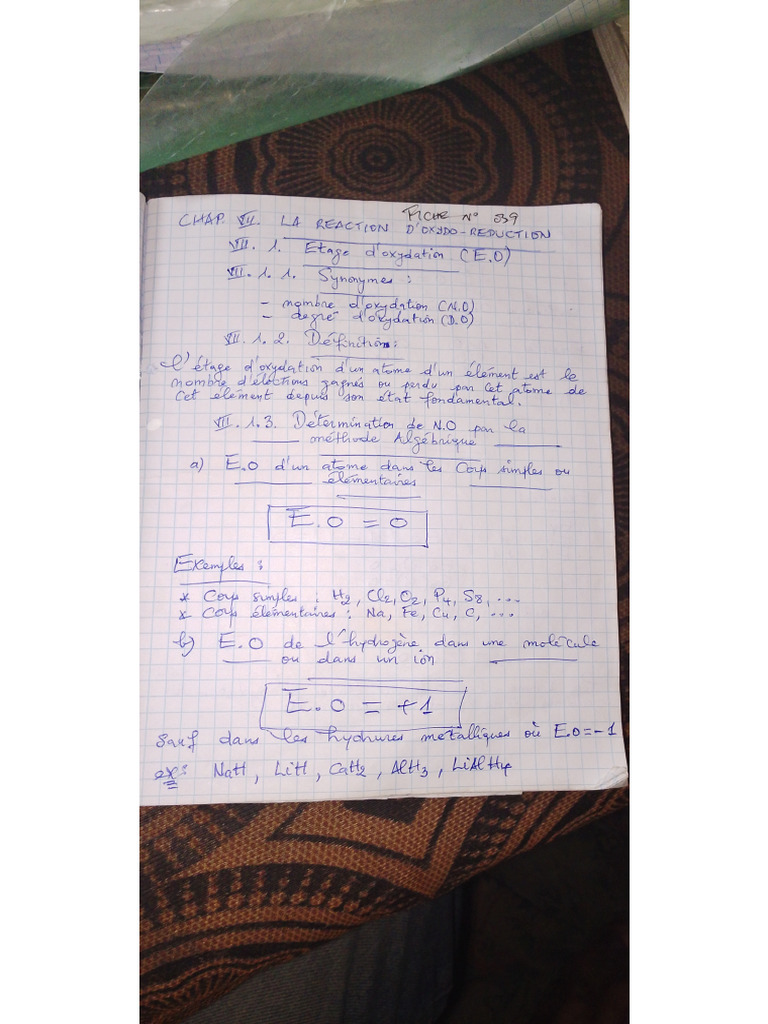 FICHE N° 39
CHAP. VII. LA REACTION D'OXYDO-REDUCTION
VII. 1. Etage d'oxydation (E.O)
VII. 1. 1. Synonymes :
- nombre d'oxydation (N.O)
- degré d'oxydation (D.O)
VII. 1. 2. Définition :
L'étage d'oxydation d'un atome d'un élément est le
nombre d'électrons gagnés ou perdu par cet atome de
cet élément depuis son état fondamental.
VII. 1. 3. Détermination de N.O par la
méthode Algébrique
a) E.O d'un atome dans les Corps simples ou
élémentaires
E.O = 0
Exemples :
* Corps simples : H2, Cl2, O2, P4, S8, ...
* Corps élémentaires : Na, Fe, Cu, C, ...
b) E.O de l'hydrogène dans une molécule
ou dans un ion
E.O = +1
Sauf dans les hydrures métalliques où E.O = -1
ex: NaH, LiH, CaH2, AlH3, LiAlH4